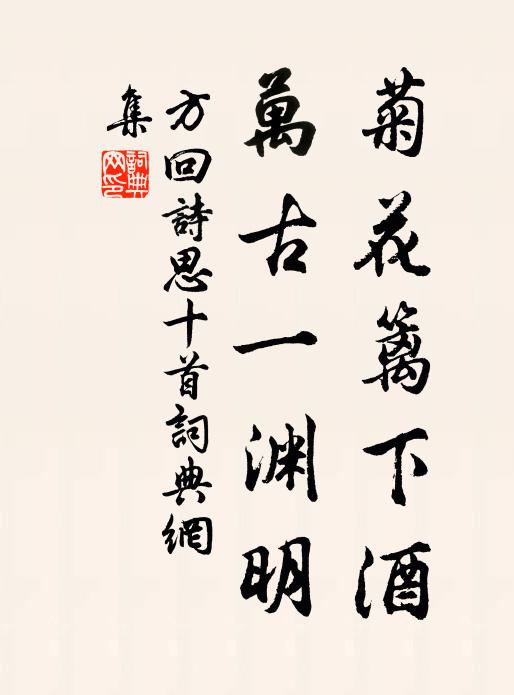 菊花籬下酒
萬古一渊明
方回詩思十首詞典網
集
詞典
网印